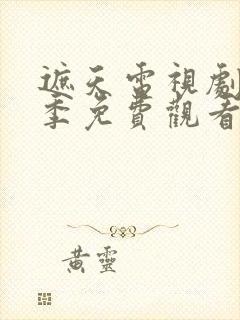 遮天電視劇
季免費觀看
黃靈